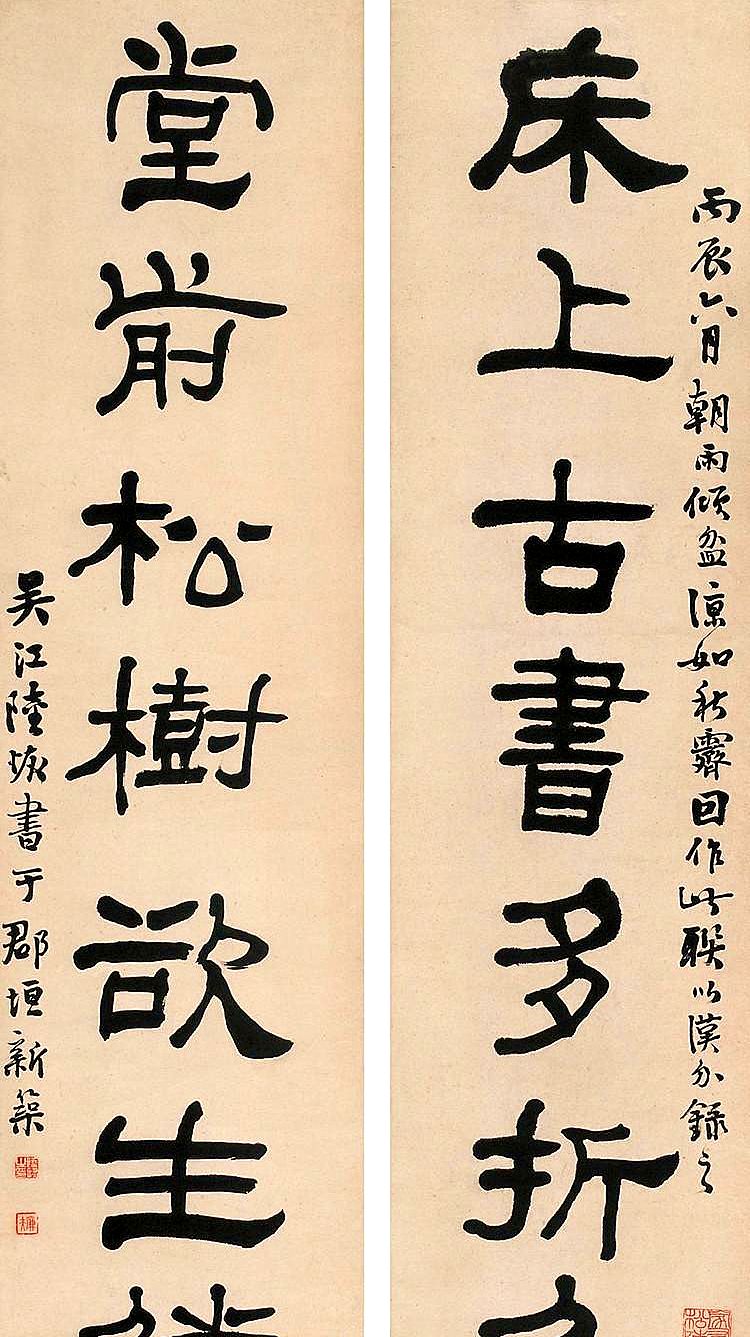 丙辰六月朝雨傾盆涼如秋霽回作此聯以漢分錄之
床上古書多折
堂前松樹欲生
吳江陸恢書于郡垣新築